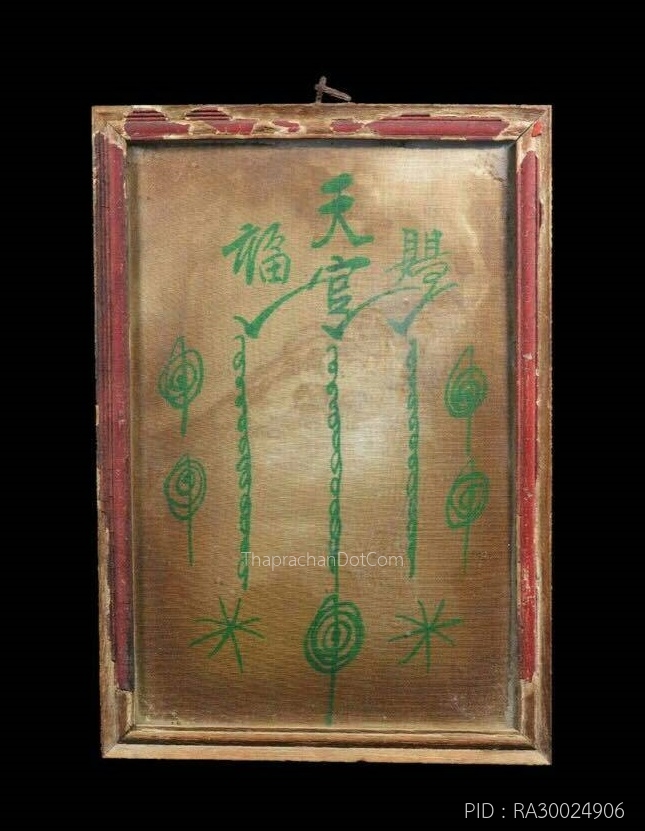 天官
賜福
ThaprachanDotCom
PID : RA30024906